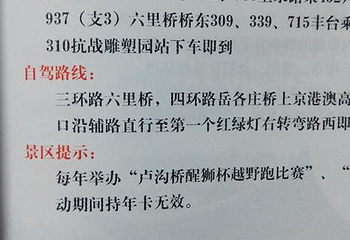 937（支3）六里桥桥东309、339、715丰台乘
310抗战雕塑园站下车即到
自驾路线：
三环路六里桥，四环路岳各庄桥上京港澳高
口沿辅路直行至第一个红绿灯右转弯路西即
景区提示：
每年举办“卢沟桥醒狮杯越野跑比赛”、“
动期间持年卡无效。